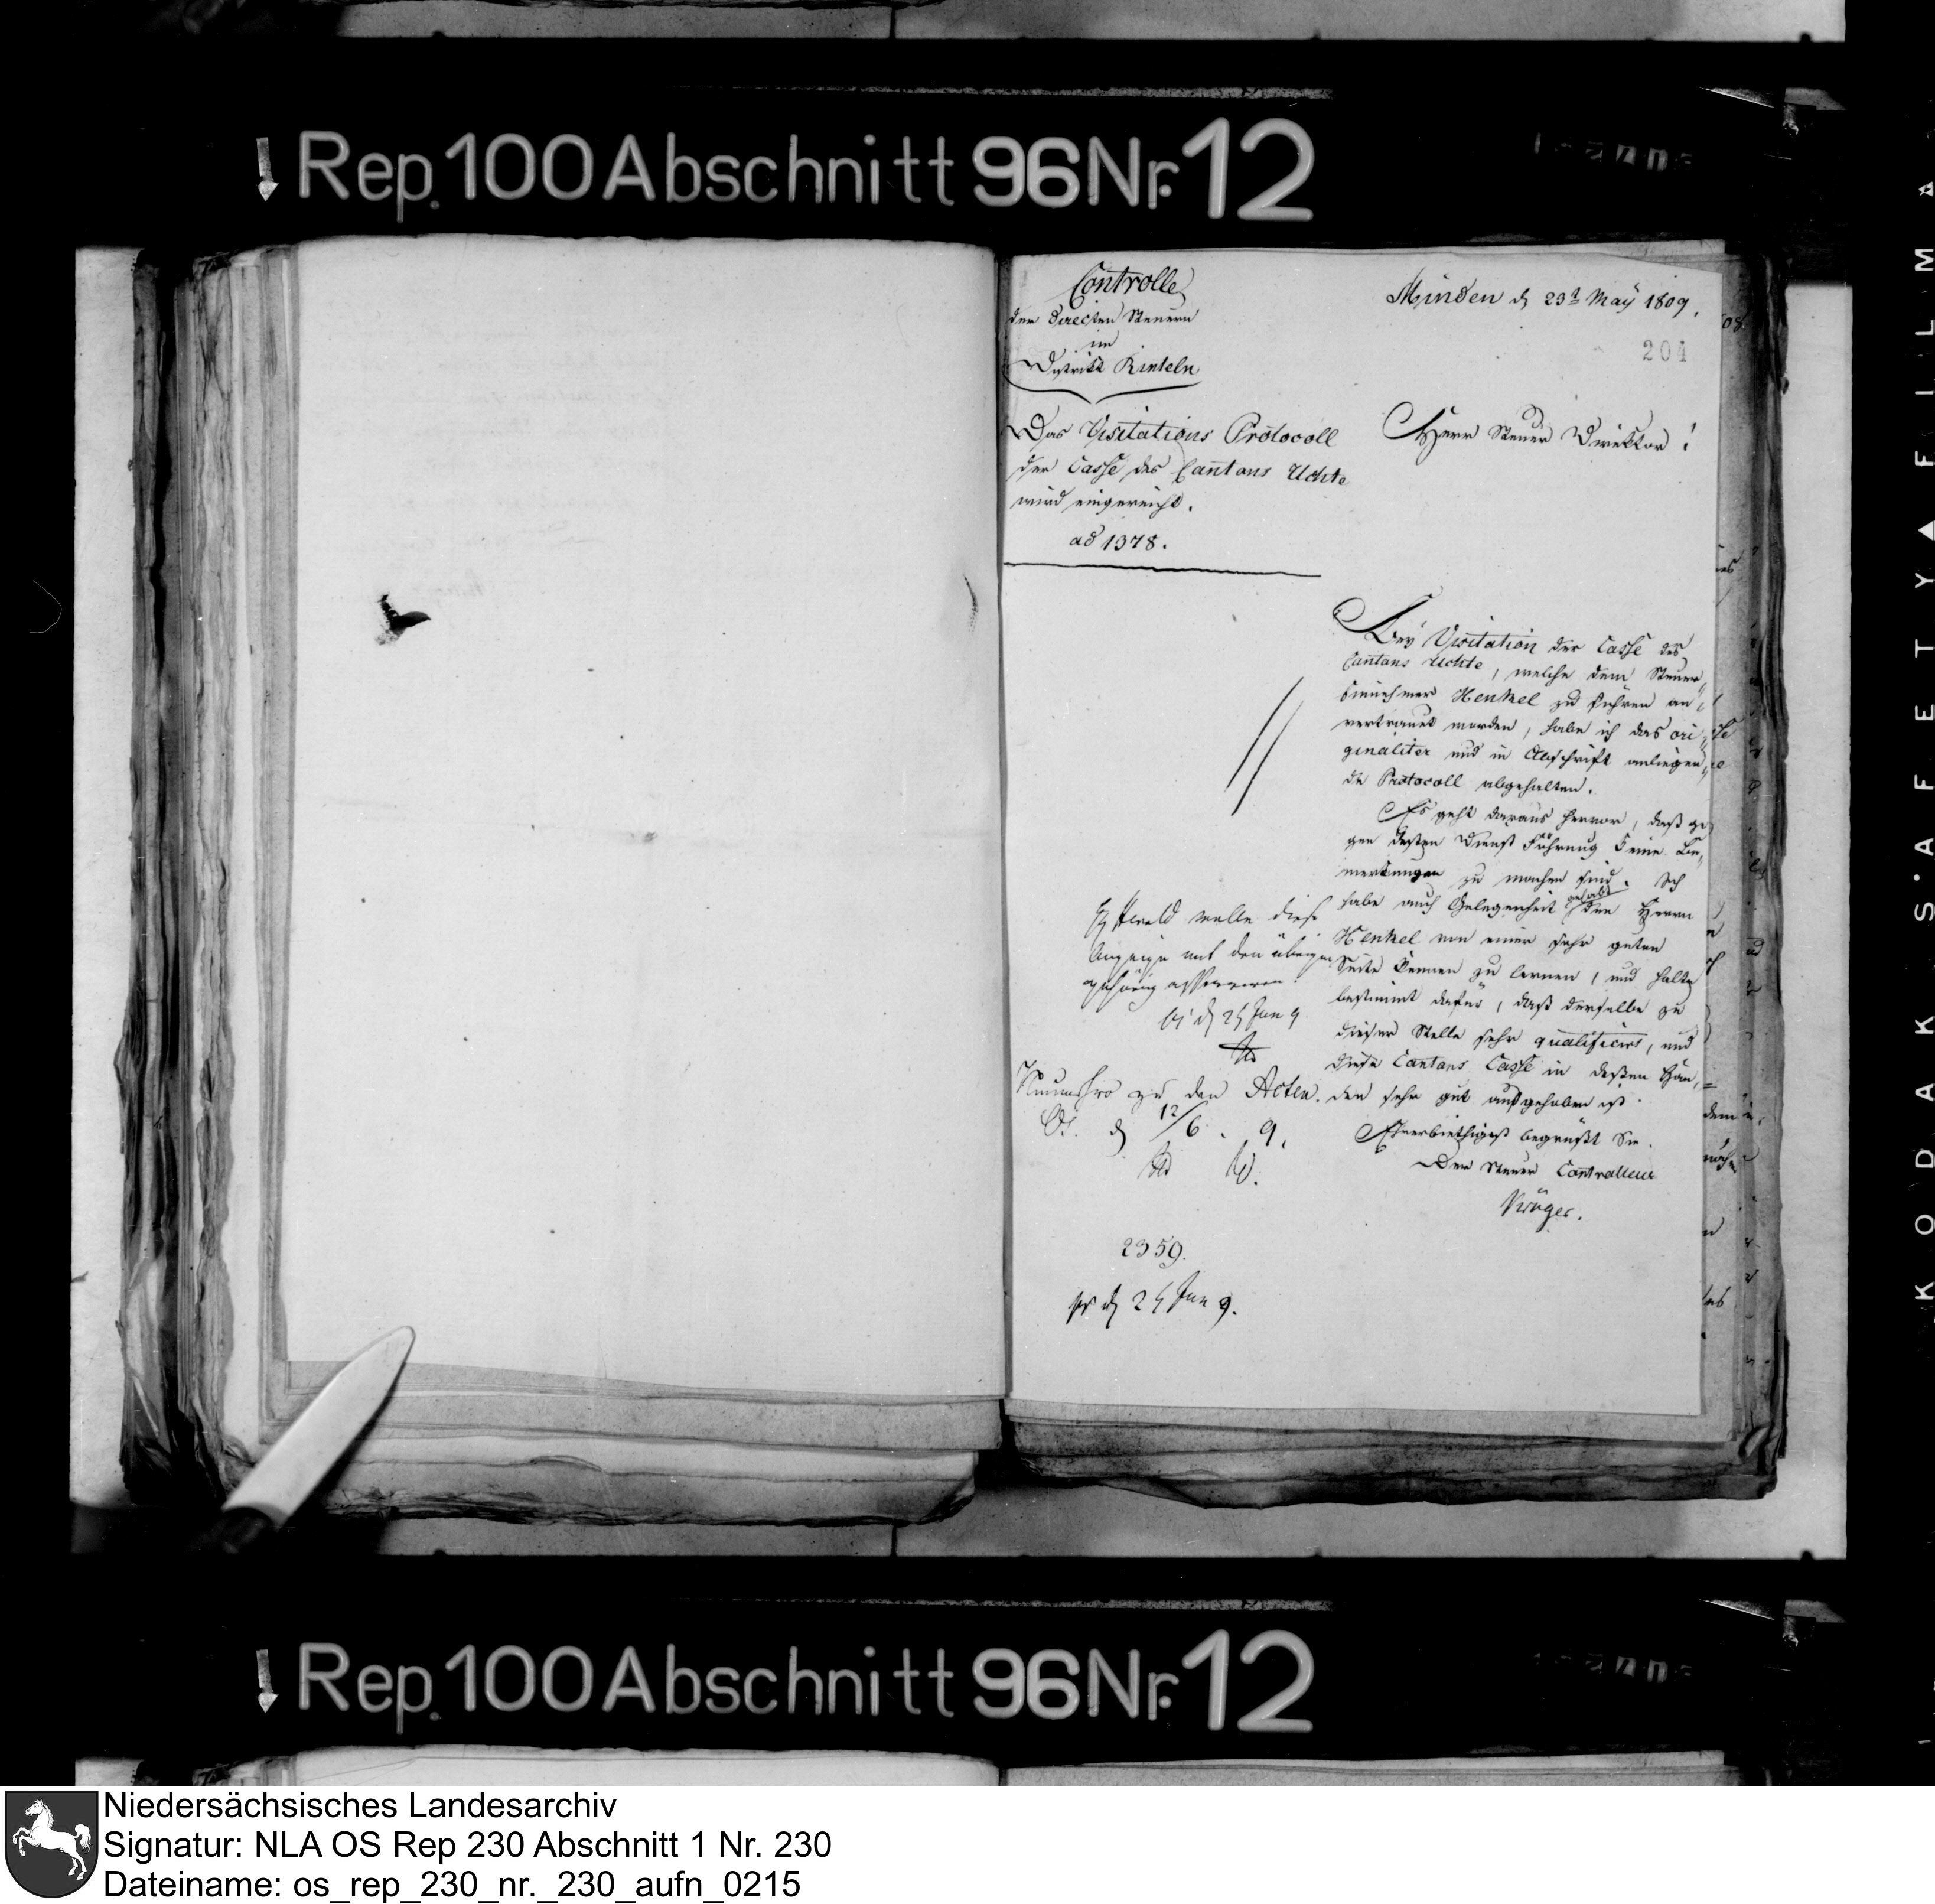 Rep. 100 Abschnitt 96 Nr. 12
Controlle
der directen Steuern
im
District Rinteln
Minden d 23t May 1809.
204
Das Visitations Protocoll
der Casse des Cantons Uchte
wird eingereicht.
ad 1378.
Herr Steuer Direktor!
Bey Visitation der Casse des
Cantons Uchte, welche dem Steuer
Einnehmer Henkel zu führen an
vertrauet worden, habe ich das ori
ginaliter und in Abschrift anliegen
de Protocoll abgehalten.
Es geht daraus hervor, daß ge
gen deßen Dienst Führung keine Be
merkungen zu machen sind. Ich
habe auch Gelegenheit gehabt den Herrn
Henkel von einer sehr guten
Seite kennen zu lernen, und halte
bestimmt dafür, daß derselbe zu
dieser Stelle sehr qualificirt, und
diese Cantons Casse in deßen Hän
den sehr gut aufgehoben ist.
Ehrerbiethigst begrüßt Sie.
Der Steuer Controlleur
Krüger.
wolle diese
Anzeige mit den übrigen
gehörig asserviren.
d 25 Jun 9
zu den Acten.
Os. d 12/6. 9.
2359.
pr d 25 Jun 9.
KODAK SAFETY FILM
Rep. 100 Abschnitt 96 Nr. 12
Niedersächsisches Landesarchiv
Signatur: NLA OS Rep 230 Abschnitt 1 Nr. 230
Dateiname: os_rep_230_nr._230_aufn_0215